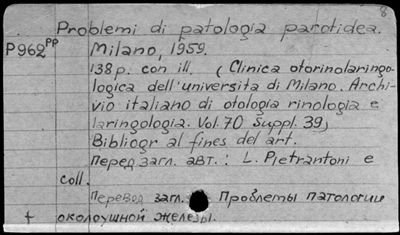 8
Problemi di patologia parotidea.
P962pp Milano, 1959.
138p. con ill. (Clinica otorinolaringo-
logica dell'universita di Milano. Archi-
vio italiano di otologia rinologia e
laringologia. Vol. 70 Suppl. 39)
Bibliogr al fines del art.
Перед загл. авт.: L. Pietrantoni e
coll.
Перевод загл.: Проблемы патологии
+ околоушной железы.